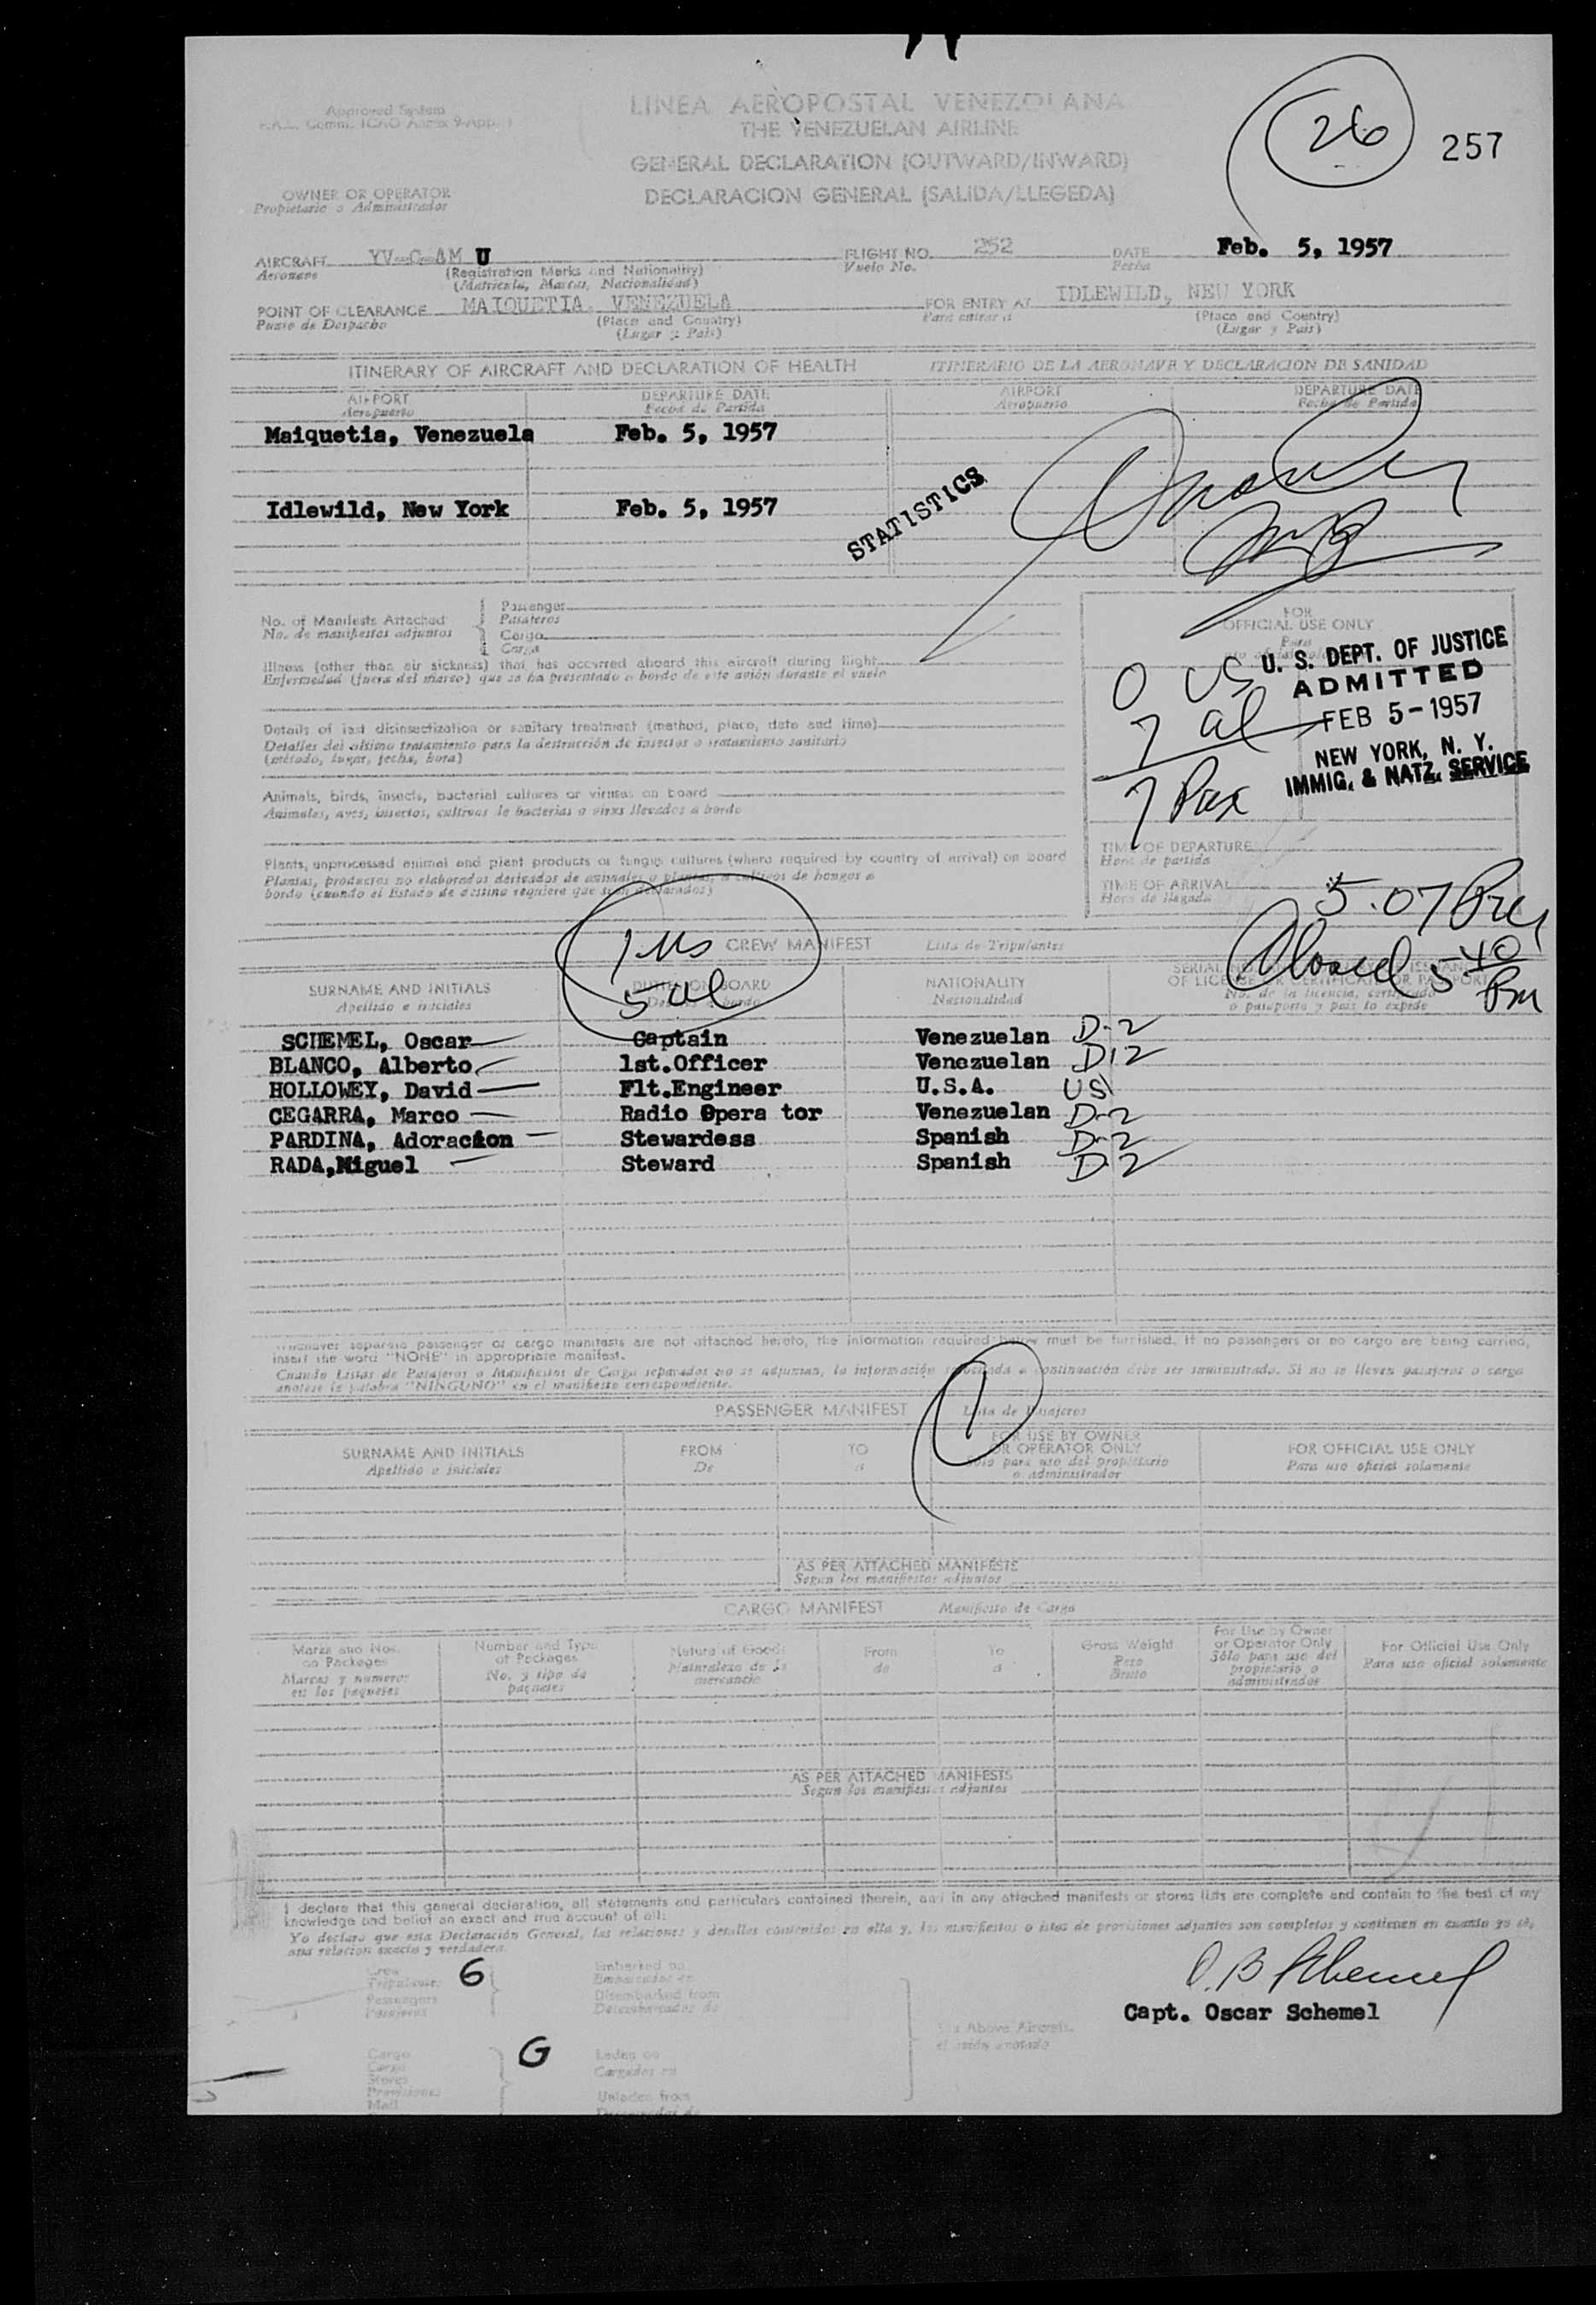 Approved System
LINEA AEROPOSTAL VENEZOLANA
THE VENEZUELAN AIRLINE
GENERAL DECLARATION (OUTWARD/INWARD)
DECLARACION GENERAL (SALIDA/LLEGEDA)
26
257
OWNER OR OPERATOR
Propietario o Administrador
AIRCRAFT YV-C-AM U FLIGHT NO. 252 DATE Feb. 5, 1957
Aeronave (Registration Marks and Nationality) Vuelo No. Fecha
(Matricula, Marcas, Nacionalidad)
POINT OF CLEARANCE MAIQUETIA, VENEZUELA FOR ENTRY AT IDLEWILD, NEW YORK
Punto de Despacho (Place and Country) Para entrar a (Place and Country)
(Lugar y Pais) (Lugar y Pais)
ITINERARY OF AIRCRAFT AND DECLARATION OF HEALTH ITINERARIO DE LA AERONAVE Y DECLARACION DE SANIDAD
AIRPORT DEPARTURE DATE AIRPORT DEPARTURE DATE
Aeropuerto Fecha de Partida Aeropuerto Fecha de Partida
Maiquetia, Venezuela Feb. 5, 1957
Idlewild, New York Feb. 5, 1957
STATISTICS
No. of Manifests Attached Passenger
No. de manifiestos adjuntos Pasajeros
Cargo
Carga
FOR
OFFICIAL USE ONLY
Para
Illness (other than air sickness) that has occurred aboard this aircraft during flight
Enfermedad (fuera del mareo) que se ha presentado a bordo de este avión durante el vuelo
Details of last disinsectization or sanitary treatment (method, place, date and time)
Detalles del ultimo tratamiento para la destrucción de insectos o tratamiento sanitario
(método, lugar, fecha, hora)
Animals, birds, insects, bacterial cultures or viruses on board
Animales, aves, insectos, cultivos de bacterias o virus llevados a bordo
Plants, unprocessed animal and plant products or fungus cultures (where required by country of arrival) on board
Plantas, productos no elaborados derivados de animales o plantas, o cultivos de hongos a
bordo (cuando el Estado de destino requiere que sean declarados)
0 US
7 al
7 Pax
U. S. DEPT. OF JUSTICE
ADMITTED
FEB 5-1957
NEW YORK, N. Y.
IMMIG. & NATZ. SERVICE
TIME OF DEPARTURE
Hora de partida
TIME OF ARRIVAL 5.07 Pm
Hora de llegada
Closed 5 40 Pm
1 US
5 al
CREW MANIFEST Lista de Tripulantes
SURNAME AND INITIALS DUTIES ON BOARD NATIONALITY
Apellido e iniciales Nacionalidad No. de la licencia, certificado
o pasaporte y pais lo expede
SCHEMEL, Oscar Captain Venezuelan D-2
BLANCO, Alberto 1st.Officer Venezuelan D-2
HOLLOWEY, David Flt.Engineer U.S.A. US
CEGARRA, Marco Radio Opera tor Venezuelan D-2
PARDINA, Adoracion Stewardess Spanish D-2
RADA,Miguel Steward Spanish D-2
Whenever separate passenger or cargo manifests are not attached hereto, the information required below must be furnished. If no passengers or no cargo are being carried,
insert the word "NONE" in appropriate manifest.
Cuando Listas de Pasajeros o Manifiestos de Carga separados no se adjuntan, la información a continuación debe ser suministrada. Si no se lleven pasajeros o carga
anótese la palabra "NINGUNO" en el manifiesto correspondiente.
1
PASSENGER MANIFEST Lista de Pasajeros
SURNAME AND INITIALS FROM TO FOR USE BY OWNER OR OPERATOR ONLY FOR OFFICIAL USE ONLY
Apellido e iniciales De a Solo para uso del propietario o administrador Para uso oficial solamente
AS PER ATTACHED MANIFESTS
Segun los manifiestos adjuntos
CARGO MANIFEST Manifiesto de Carga
Marks and Nos. on Packages Number and Type of Packages Nature of Goods From To Gross Weight For Use by Owner or Operator Only For Official Use Only
Marcas y numeros en los paquetes No. y tipo de paquetes Naturaleza de la mercancia de a Peso Bruto Sólo para uso del propietario o administrador Para uso oficial solamente
AS PER ATTACHED MANIFESTS
Segun los manifiestos adjuntos
I declare that this general declaration, all statements and particulars contained therein, and in any attached manifests or stores lists are complete and contain to the best of my
knowledge and belief an exact and true account of all:
Yo declaro que esta Declaración General, las relaciones y detalles contenidos en ella y, los manifiestos o listas de provisiones adjuntos son completos y contienen en cuanto yo sé,
una relacion exacta y verdadera.
Crew 6 Embarked on
Tripulantes Embarcados en
Passengers Disembarked from
Pasajeros Desembarcados de
O. B Schemel
Capt. Oscar Schemel
Above Aircraft
el avión anotado
Cargo G Laden on
Carga Cargados en
Stores
Provisiones Unladen from
Mail